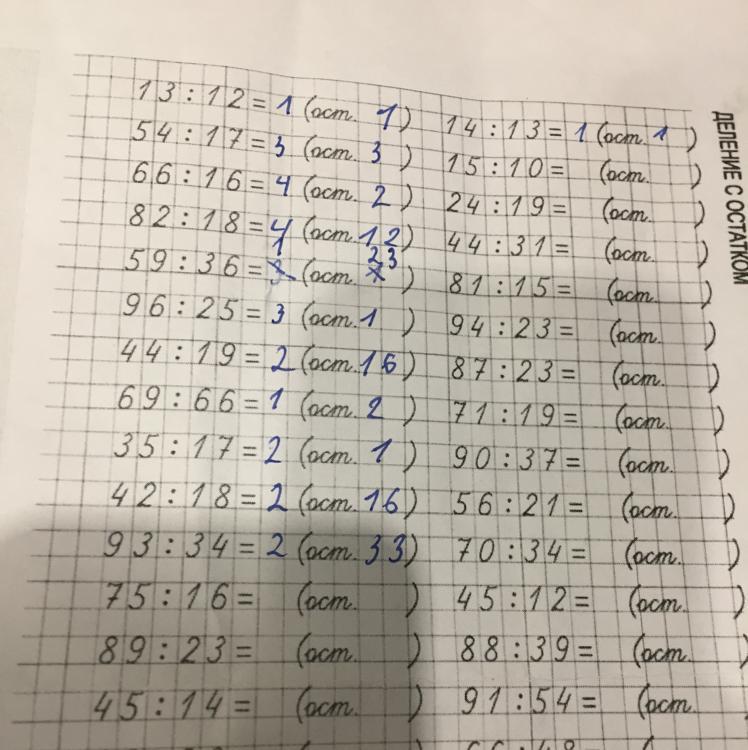 ДЕЛЕНИЕ С ОСТАТКОМ
13 : 12 = 1 (ост. 1)
54 : 17 = 3 (ост. 3)
66 : 16 = 4 (ост. 2)
82 : 18 = 4 (ост. 12)
59 : 36 = 1 (ост. 23)
96 : 25 = 3 (ост. 1)
44 : 19 = 2 (ост. 16)
69 : 66 = 1 (ост. 2)
35 : 17 = 2 (ост. 1)
42 : 18 = 2 (ост. 16)
93 : 34 = 2 (ост. 33)
75 : 16 = (ост. )
89 : 23 = (ост. )
45 : 14 = (ост. )
14 : 13 = 1 (ост. 1)
15 : 10 = (ост. )
24 : 19 = (ост. )
44 : 31 = (ост. )
81 : 15 = (ост. )
94 : 23 = (ост. )
87 : 23 = (ост. )
71 : 19 = (ост. )
90 : 37 = (ост. )
56 : 21 = (ост. )
70 : 34 = (ост. )
45 : 12 = (ост. )
88 : 39 = (ост. )
91 : 54 = (ост.